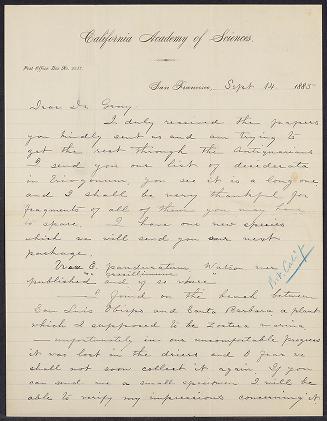 California Academy of Sciences.
Post Office Box No. 2247.
San Francisco, Sept 14 1885
Dear Dr Gray
I duly received the papers
you kindly sent us and am trying to
get the rest through the Antiquarians
I send you our list of desiderata
in Eriogonum, you see it is a long one
and I shall be very thankful for
fragments of all of them you may have
to spare. I have one new species
which we will send you in our next
package.
Was E. Watson ever
published and if so where
I found on the beach between
San Luis Obispo and Santa Barbara a plant
which I supposed to be Zostera marina
— unfortunately in our uncomfortable progress
it was lost in the driers and I fear we
shall not soon collect it again. If you
can send me a small specimen I will be
able to verify my impressions concerning it